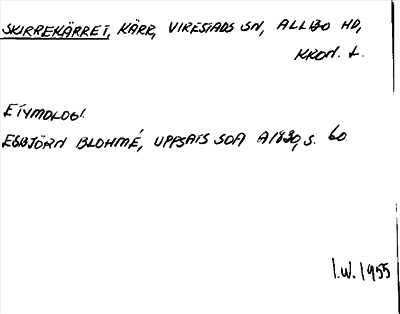 SKIRREKÄRRET, KÄRR, VIRESTADS SN, ALLBO HD,
KRON. L.
ETYMOLOGI.
ESBJÖRN BLOHMÉ, UPPSATS SOA A1830, S. 60
I.W. 1955